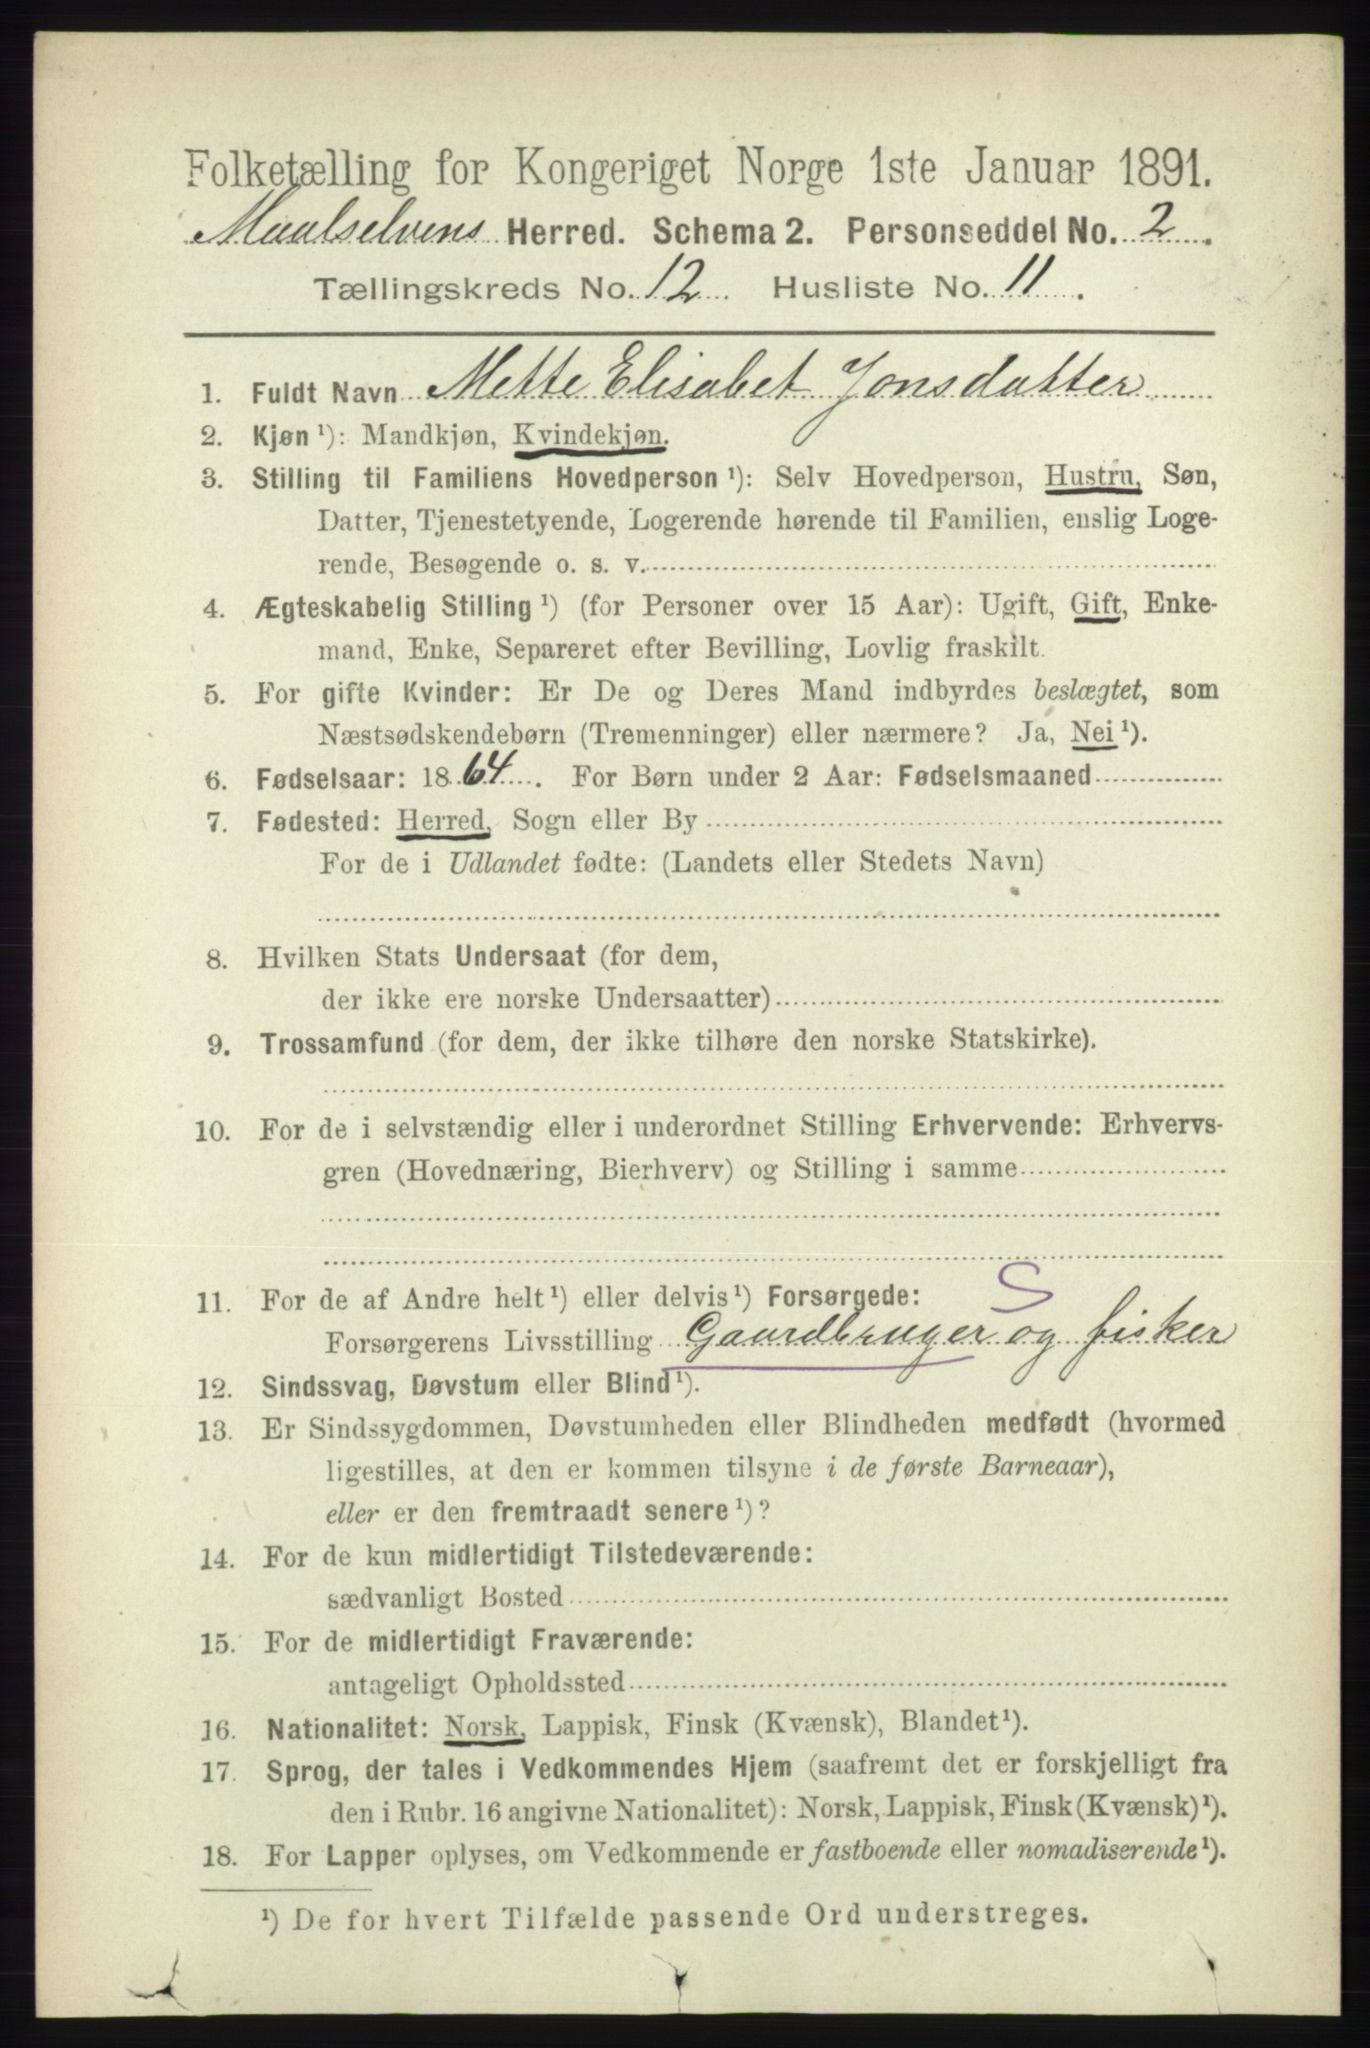 Folketælling for Kongeriget Norge 1ste Januar 1891.
Maalselvens Herred. Schema 2. Personseddel No. 2.
Tællingskreds No. 12 Husliste No. 11.
1. Fuldt Navn Mette Elisabet Jonsdatter
2. Kjøn ¹): Mandkjøn, Kvindekjøn.
3. Stilling til Familiens Hovedperson ¹): Selv Hovedperson, Hustru, Søn,
Datter, Tjenestetyende, Logerende hørende til Familien, enslig Loge-
rende, Besøgende o. s. v.
4. Ægteskabelig Stilling ¹) (for Personer over 15 Aar): Ugift, Gift, Enke-
mand, Enke, Separeret efter Bevilling, Lovlig fraskilt.
5. For gifte Kvinder: Er De og Deres Mand indbyrdes beslægtet, som
Næstsødskendebørn (Tremenninger) eller nærmere? Ja, Nei ¹).
6. Fødselsaar: 1864. For Børn under 2 Aar: Fødselsmaaned
7. Fødested: Herred, Sogn eller By
For de i Udlandet fødte: (Landets eller Stedets Navn)
8. Hvilken Stats Undersaat (for dem,
der ikke ere norske Undersaatter)
9. Trossamfund (for dem, der ikke tilhøre den norske Statskirke).
10. For de i selvstændig eller i underordnet Stilling Erhvervende: Erhvervs-
gren (Hovednæring, Bierhverv) og Stilling i samme
11. For de af Andre helt ¹) eller delvis ¹) Forsørgede: S
Forsørgerens Livsstilling Gaardbruger og fisker
12. Sindssvag, Døvstum eller Blind ¹).
13. Er Sindssygdommen, Døvstumheden eller Blindheden medfødt (hvormed
ligestilles, at den er kommen tilsyne i de første Barneaar),
eller er den fremtraadt senere ¹)?
14. For de kun midlertidigt Tilstedeværende:
sædvanligt Bosted
15. For de midlertidigt Fraværende:
antageligt Opholdssted
16. Nationalitet: Norsk, Lappisk, Finsk (Kvænsk), Blandet ¹).
17. Sprog, der tales i Vedkommendes Hjem (saafremt det er forskjelligt fra
den i Rubr. 16 angivne Nationalitet): Norsk, Lappisk, Finsk (Kvænsk) ¹).
18. For Lapper oplyses, om Vedkommende er fastboende eller nomadiserende ¹).
¹) De for hvert Tilfælde passende Ord understreges.